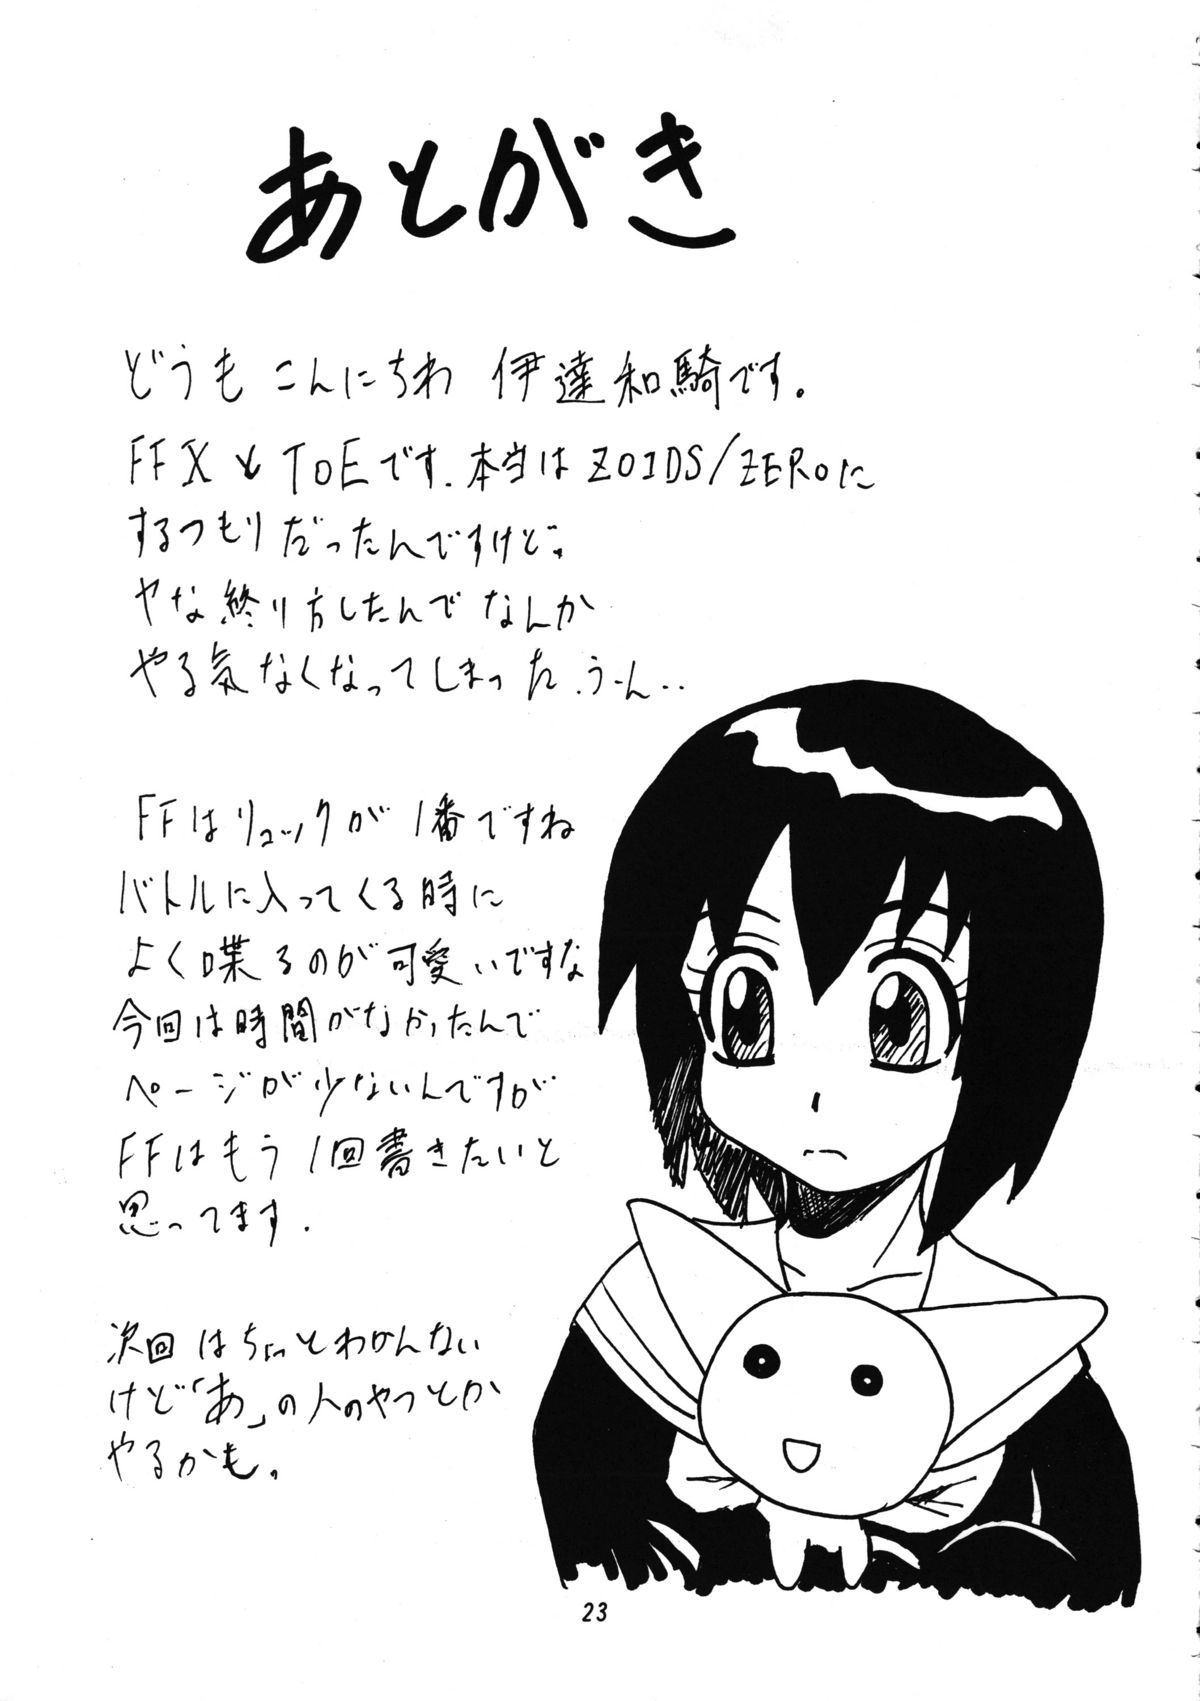 あとがき
どうも こんにちわ 伊達和騎です。
FFXとToEです.本当はZOIDS/ZEROに
するつもりだったんですけど。
ヤな終り方したんでなんか
やる気なくなってしまった.うーん..
FFはリュックが1番ですね
バトルに入ってくる時に
よく喋るのが可愛いですな
今回は時間がなかったんで
ページが少ないんですが
FFはもう1回書きたいと
思ってます.
次回はちょっとわかんない
けど「あ」の人のやつとか
やるかも。
23